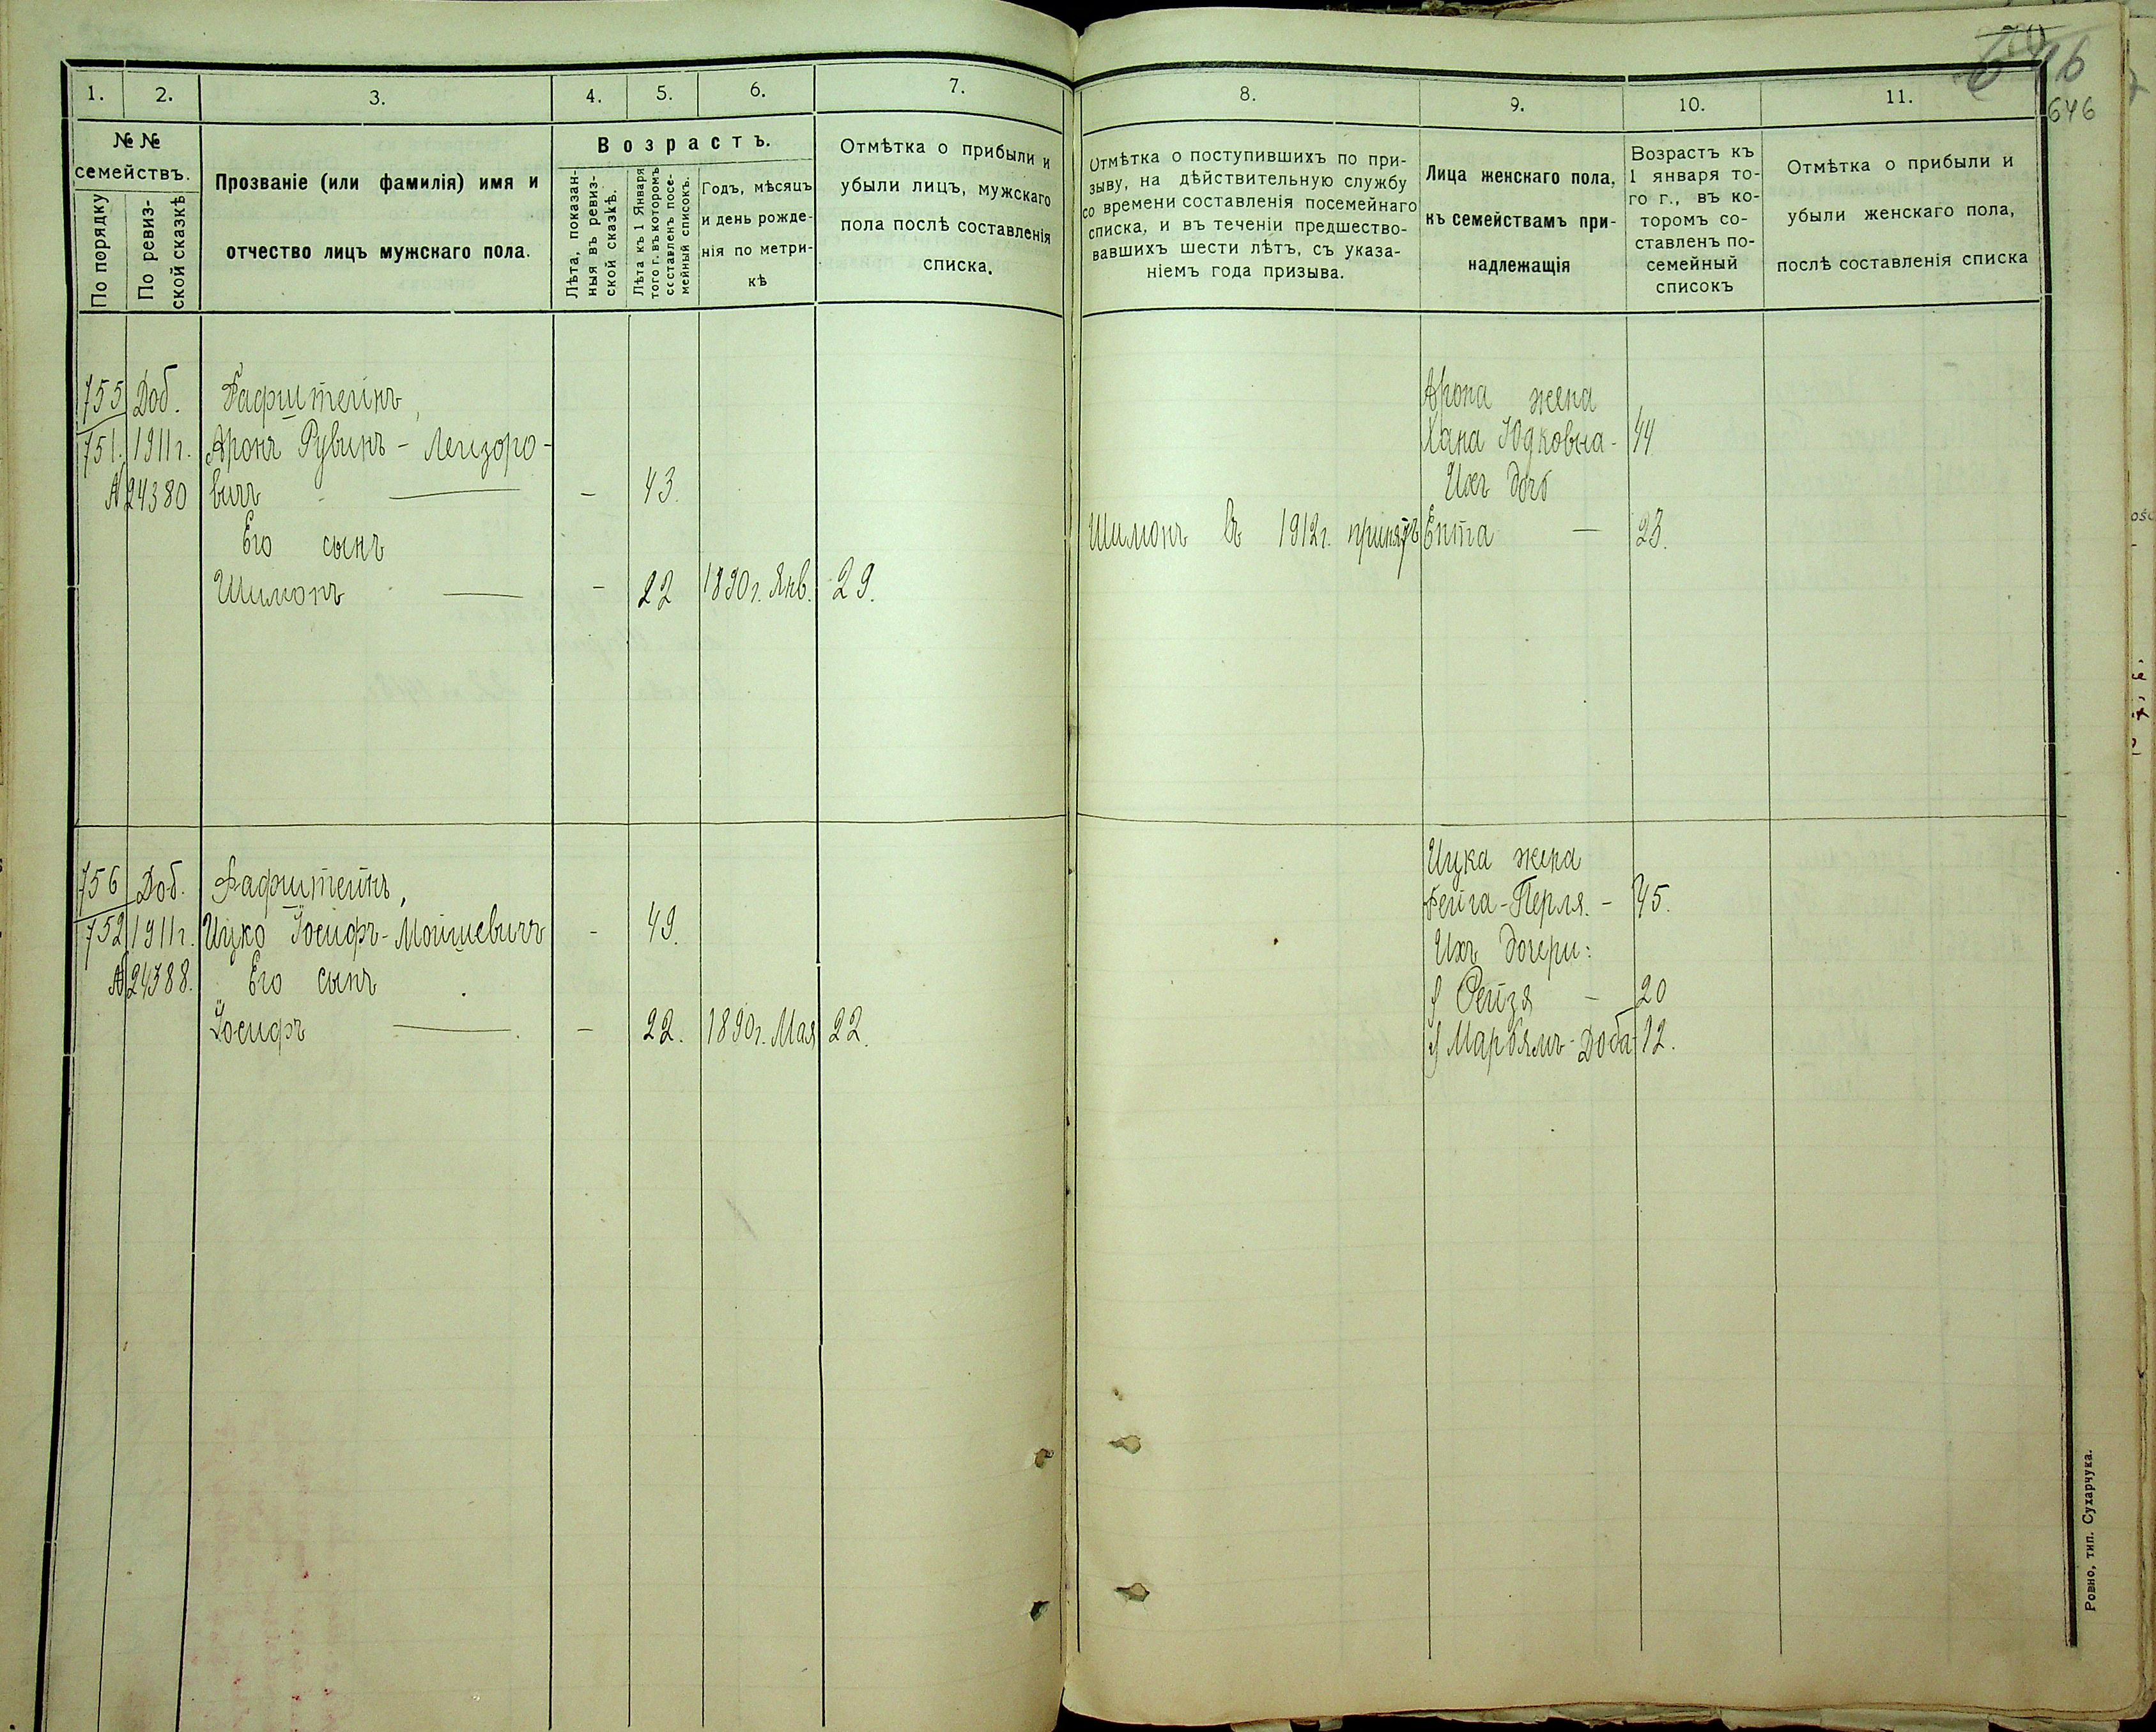 646
646
1. 2. 3. 4. 5. 6. 7.
№ №
семействъ.
По порядку
По ревиз-
ской сказкѣ
Прозваніе (или фамилія) имя и
отчество лицъ мужскаго пола.
Возрастъ.
Лѣта, показан-
ныя въ ревиз-
ской сказкѣ.
Лѣта къ 1 Января
того г. въ которомъ
составленъ посе-
мейный списокъ.
Годъ, мѣсяцъ
и день рожде-
нія по метри-
кѣ
Отмѣтка о прибыли и
убыли лицъ, мужскаго
пола послѣ составленія
списка.
755 Доб. Фафштейнъ,
751. 1911 г. Аронъ Рувинъ-Лейзоро-
№ 24380 вичъ — – 43.
Его сынъ
Шимонъ — – 22 1890 г. Янв. 29.
756 Доб. Фафштейнъ,
752 1911 г. Ицко Іосифъ-Мойшевичъ – 49.
№ 24388. Его сынъ
Іосифъ — – 22. 1890 г. Мая 22.
8. 9. 10. 11.
Отмѣтка о поступившихъ по при-
зыву, на дѣйствительную службу
со времени составленія посемейнаго
списка, и въ теченіи предшество-
вавшихъ шести лѣтъ, съ указа-
ніемъ года призыва.
Лица женскаго пола,
къ семействамъ при-
надлежащія
Возрастъ къ
1 января то-
го г., въ ко-
торомъ со-
ставленъ по-
семейный
списокъ
Отмѣтка о прибыли и
убыли женскаго пола,
послѣ составленія списка
Арона жена
Хана Юдковна - 44
Ихъ дочь
Шимонъ въ 1912 г. принятъ Ента — 23.
Ицка жена
Фейга-Перля. - 45.
Ихъ дочери:
1 Рейзя – 20
2 Марьямъ-Доба 12.
Ровно, тип. Сухарчука.